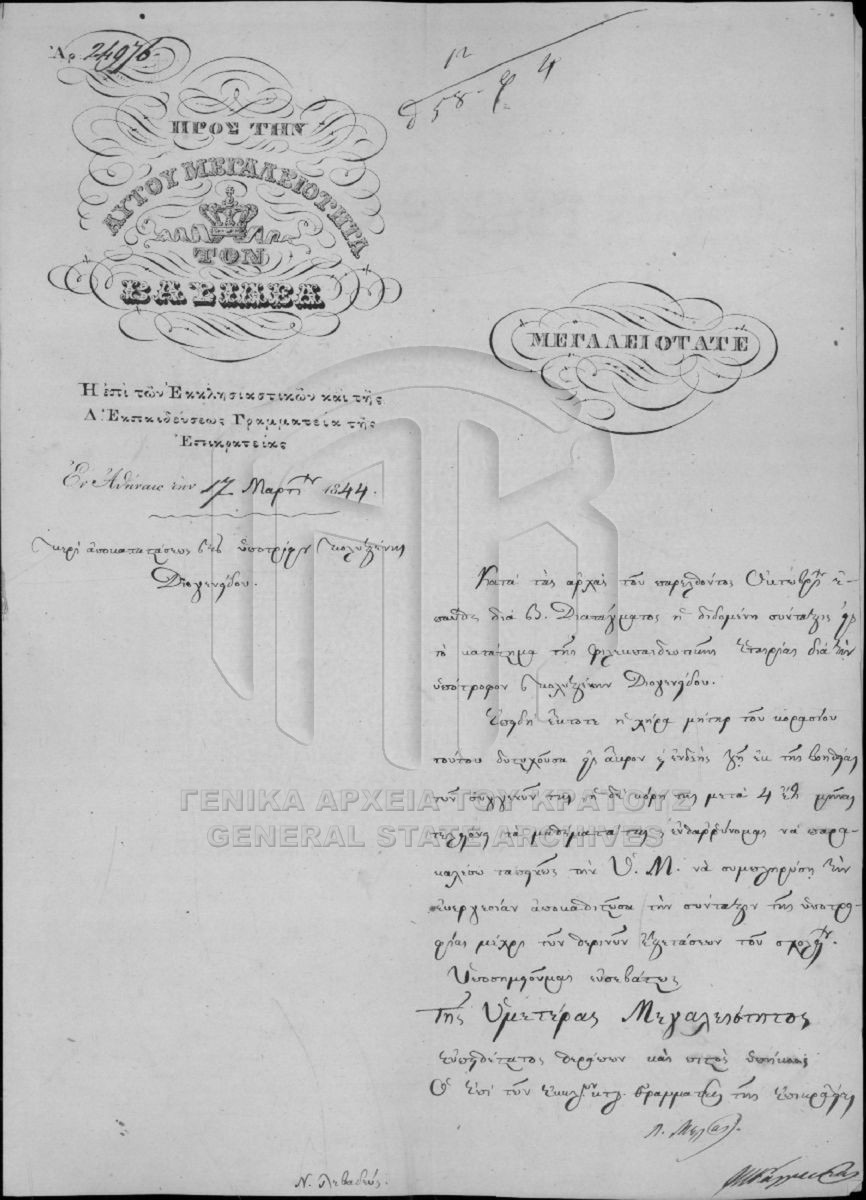 Ἀρ. 24976
ΠΡΟΣ ΤΗΝ
ΑΥΤΟΥ ΜΕΓΑΛΕΙΟΤΗΤΑ
ΤΟΝ
ΒΑΣΙΛΕΑ
ΜΕΓΑΛΕΙΟΤΑΤΕ
Ἡ ἐπὶ τῶν Ἐκκλησιαστικῶν καὶ τῆς
Δ. Ἐκπαιδεύσεως Γραμματεία τῆς
Ἐπικρατείας
Ἐν Ἀθήναις τὴν 17 Μαρτίου 1844.
περὶ ὑποτρόφου Πολυξένης
Διογενίδου.
Κατὰ τὰς ἀρχὰς τοῦ παρελθόντος Ὀκτωβρίου ἐ-
παύθη διὰ Β. Διατάγματος ἡ διδομένη σύνταξις
τὸ κατάστημα τῆς φιλεκπαιδευτικῆς Ἑταιρίας διὰ τὴν
ὑπότροφον Πολυξένην Διογενίδου.
Ἐπειδὴ ἔκτοτε ἡ χήρα μήτηρ τοῦ κορασίου
τούτου δυστυχοῦσα εἰς ἄκρον ζῇ ἐκ τῆς βοηθείας
τῶν συγγενῶν της ἡ δὲ κόρη της μετὰ 4 ἔτι μῆνας
τελειόνει τὰ μαθήματά της ἐνθαρρύνομαι νὰ παρα-
καλέσω ταπεινῶς τὴν Ὑ. Μ. νὰ συμπληρώσῃ τὴν
εὐεργεσίαν τὴν σύνταξιν τῆς ὑποτρο-
φίας μέχρι τῶν θερινῶν ἐξετάσεων τοῦ σχολείου.
Ὑποσημειοῦμαι εὐσεβάστως
Τῆς Ὑμετέρας Μεγαλειότητος
εὐπειθέστατος θεράπων καὶ πιστὸς ὑπήκοος
Ὁ Ἐπὶ τῶν Ἐκκλ. κτλ. Γραμματεὺς τῆς Ἐπικρατείας
Λ. Μελᾶς.
Ν. Λεβαδεύς.
ΓΕΝΙΚΑ ΑΡΧΕΙΑ ΤΟΥ ΚΡΑΤΟΥΣ
GENERAL STATE ARCHIVES